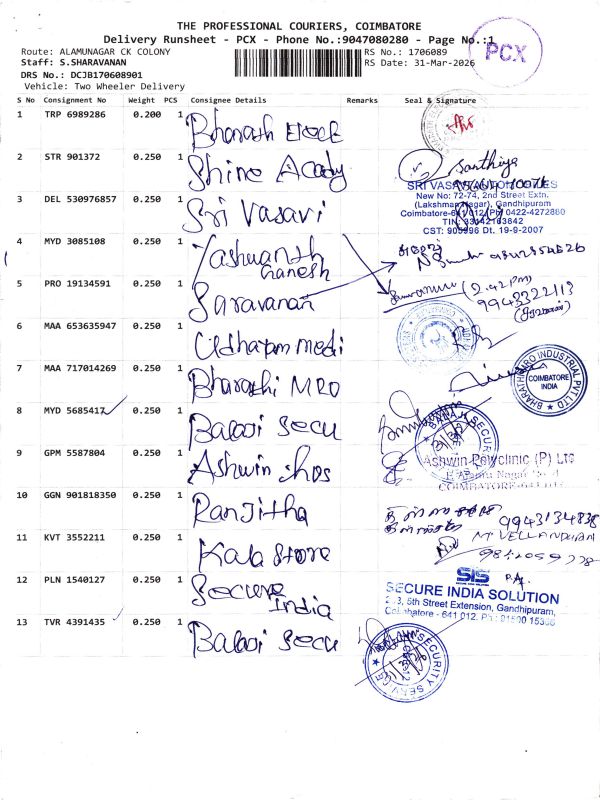 THE PROFESSIONAL COURIERS, COIMBATORE
Delivery Runsheet - PCX - Phone No.:9047080280 - Page No.:1
PCX
Route: ALAMUNAGAR CK COLONY
RS No.: 1706089
Staff: S.SHARAVANAN
RS Date: 31-Mar-2026
DRS No.: DCJB170608901
Vehicle: Two Wheeler Delivery
S No Consignment No Weight PCS Consignee Details Remarks Seal & Signature
1 TRP 6989286 0.200 1 Bharath
2 STR 901372 0.250 1 Shine Acady Santhiya
3 DEL 530976857 0.250 1 Sri Vasavi
New No: 72-74, 2nd Street Extn.
(Lakshmanar Nagar), Gandhipuram
Coimbatore-641 012 (P) 0422-4272860
TIN: 33142163842
CST: 905996 Dt. 19-9-2007
4 MYD 3085108 0.250 1 Yashwanth
Ganesh
5 PRO 19134591 0.250 1 Saravanan
(2.42 PM)
9943322113
6 MAA 653635947 0.250 1 Udhayam medi
7 MAA 717014269 0.250 1 Bharathi MRO
BHARATHI MRO INDUSTRIAL PVT LTD
COIMBATORE
INDIA
8 MYD 5685417 0.250 1 Balaji Secu
BALAJI SECURITY
9 GPM 5587804 0.250 1 Ashwin Hos
Ashwin Polyclinic (P) Ltd
COIMBATORE-641 012
10 GGN 901818350 0.250 1 Ranjitha
9943134838
11 KVT 3552211 0.250 1 Kala Store
M. VELLANDURAI
12 PLN 1540127 0.250 1 Secure
India
SIS
SECURE INDIA SOLUTION
5th Street Extension, Gandhipuram,
Coimbatore - 641 012.
13 TVR 4391435 0.250 1 Balaji Secu
SECURITY SERVICE